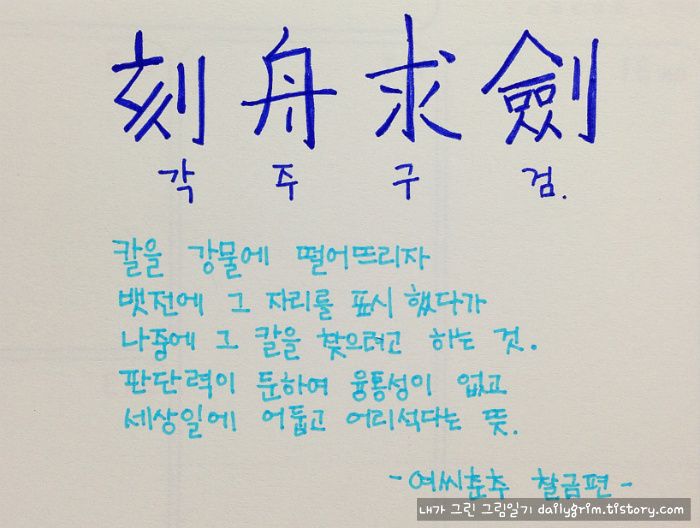 刻舟求劍
각 주 구 검.
칼을 강물에 떨어뜨리자
뱃전에 그 자리를 표시했다가
나중에 그 칼을 찾으려고 하는 것.
판단력이 둔하여 융통성이 없고
세상일에 어둡고 어리석다는 뜻.
-여씨춘추 찰금편-
내가 그린 그림일기 dailygrim.tistory.com